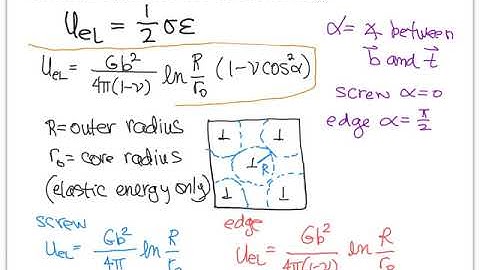 U_EL = 1/2 σε
U_EL = Gb²/4π(1-ν) ln R/r₀ (1-νcos²α)
α = ∡ between
b⃗ and t⃗
screw α=0
edge α= π/2
R= outer radius
r₀= core radius
(elastic energy only)
⊥ ⊥
⊥ R
⊥ ⊥
screw
U_EL = Gb²/4π ln R/r₀
edge
U_EL = Gb²/4π(1-ν) ln R/r₀